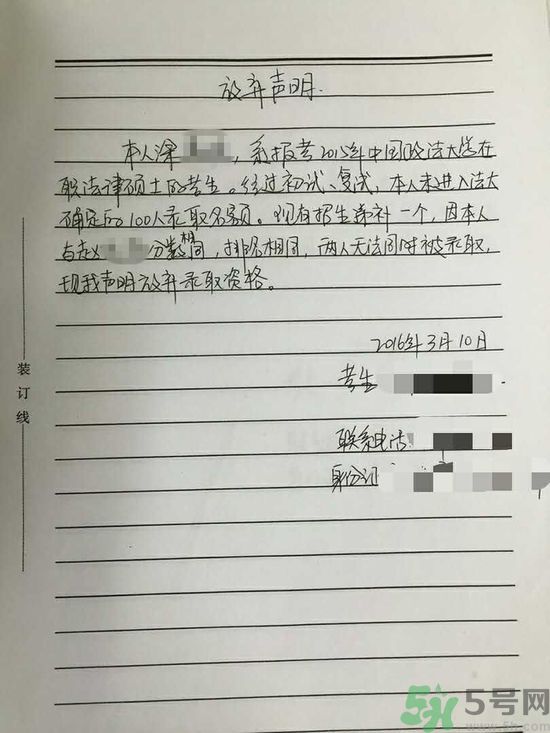 放弃声明
本人涂，系报考2015年中国政法大学在
职法律硕士的考生。经过初试、复试，本人未进入法大
确定的100人录取名额。现有招生递补一个，因本人
与赵分数相同，排名相同，两人无法同时被录取，
现我声明放弃录取资格。
2016年3月10日
考生
联系电话：
身份证
装订线
5号网
www.5h.com